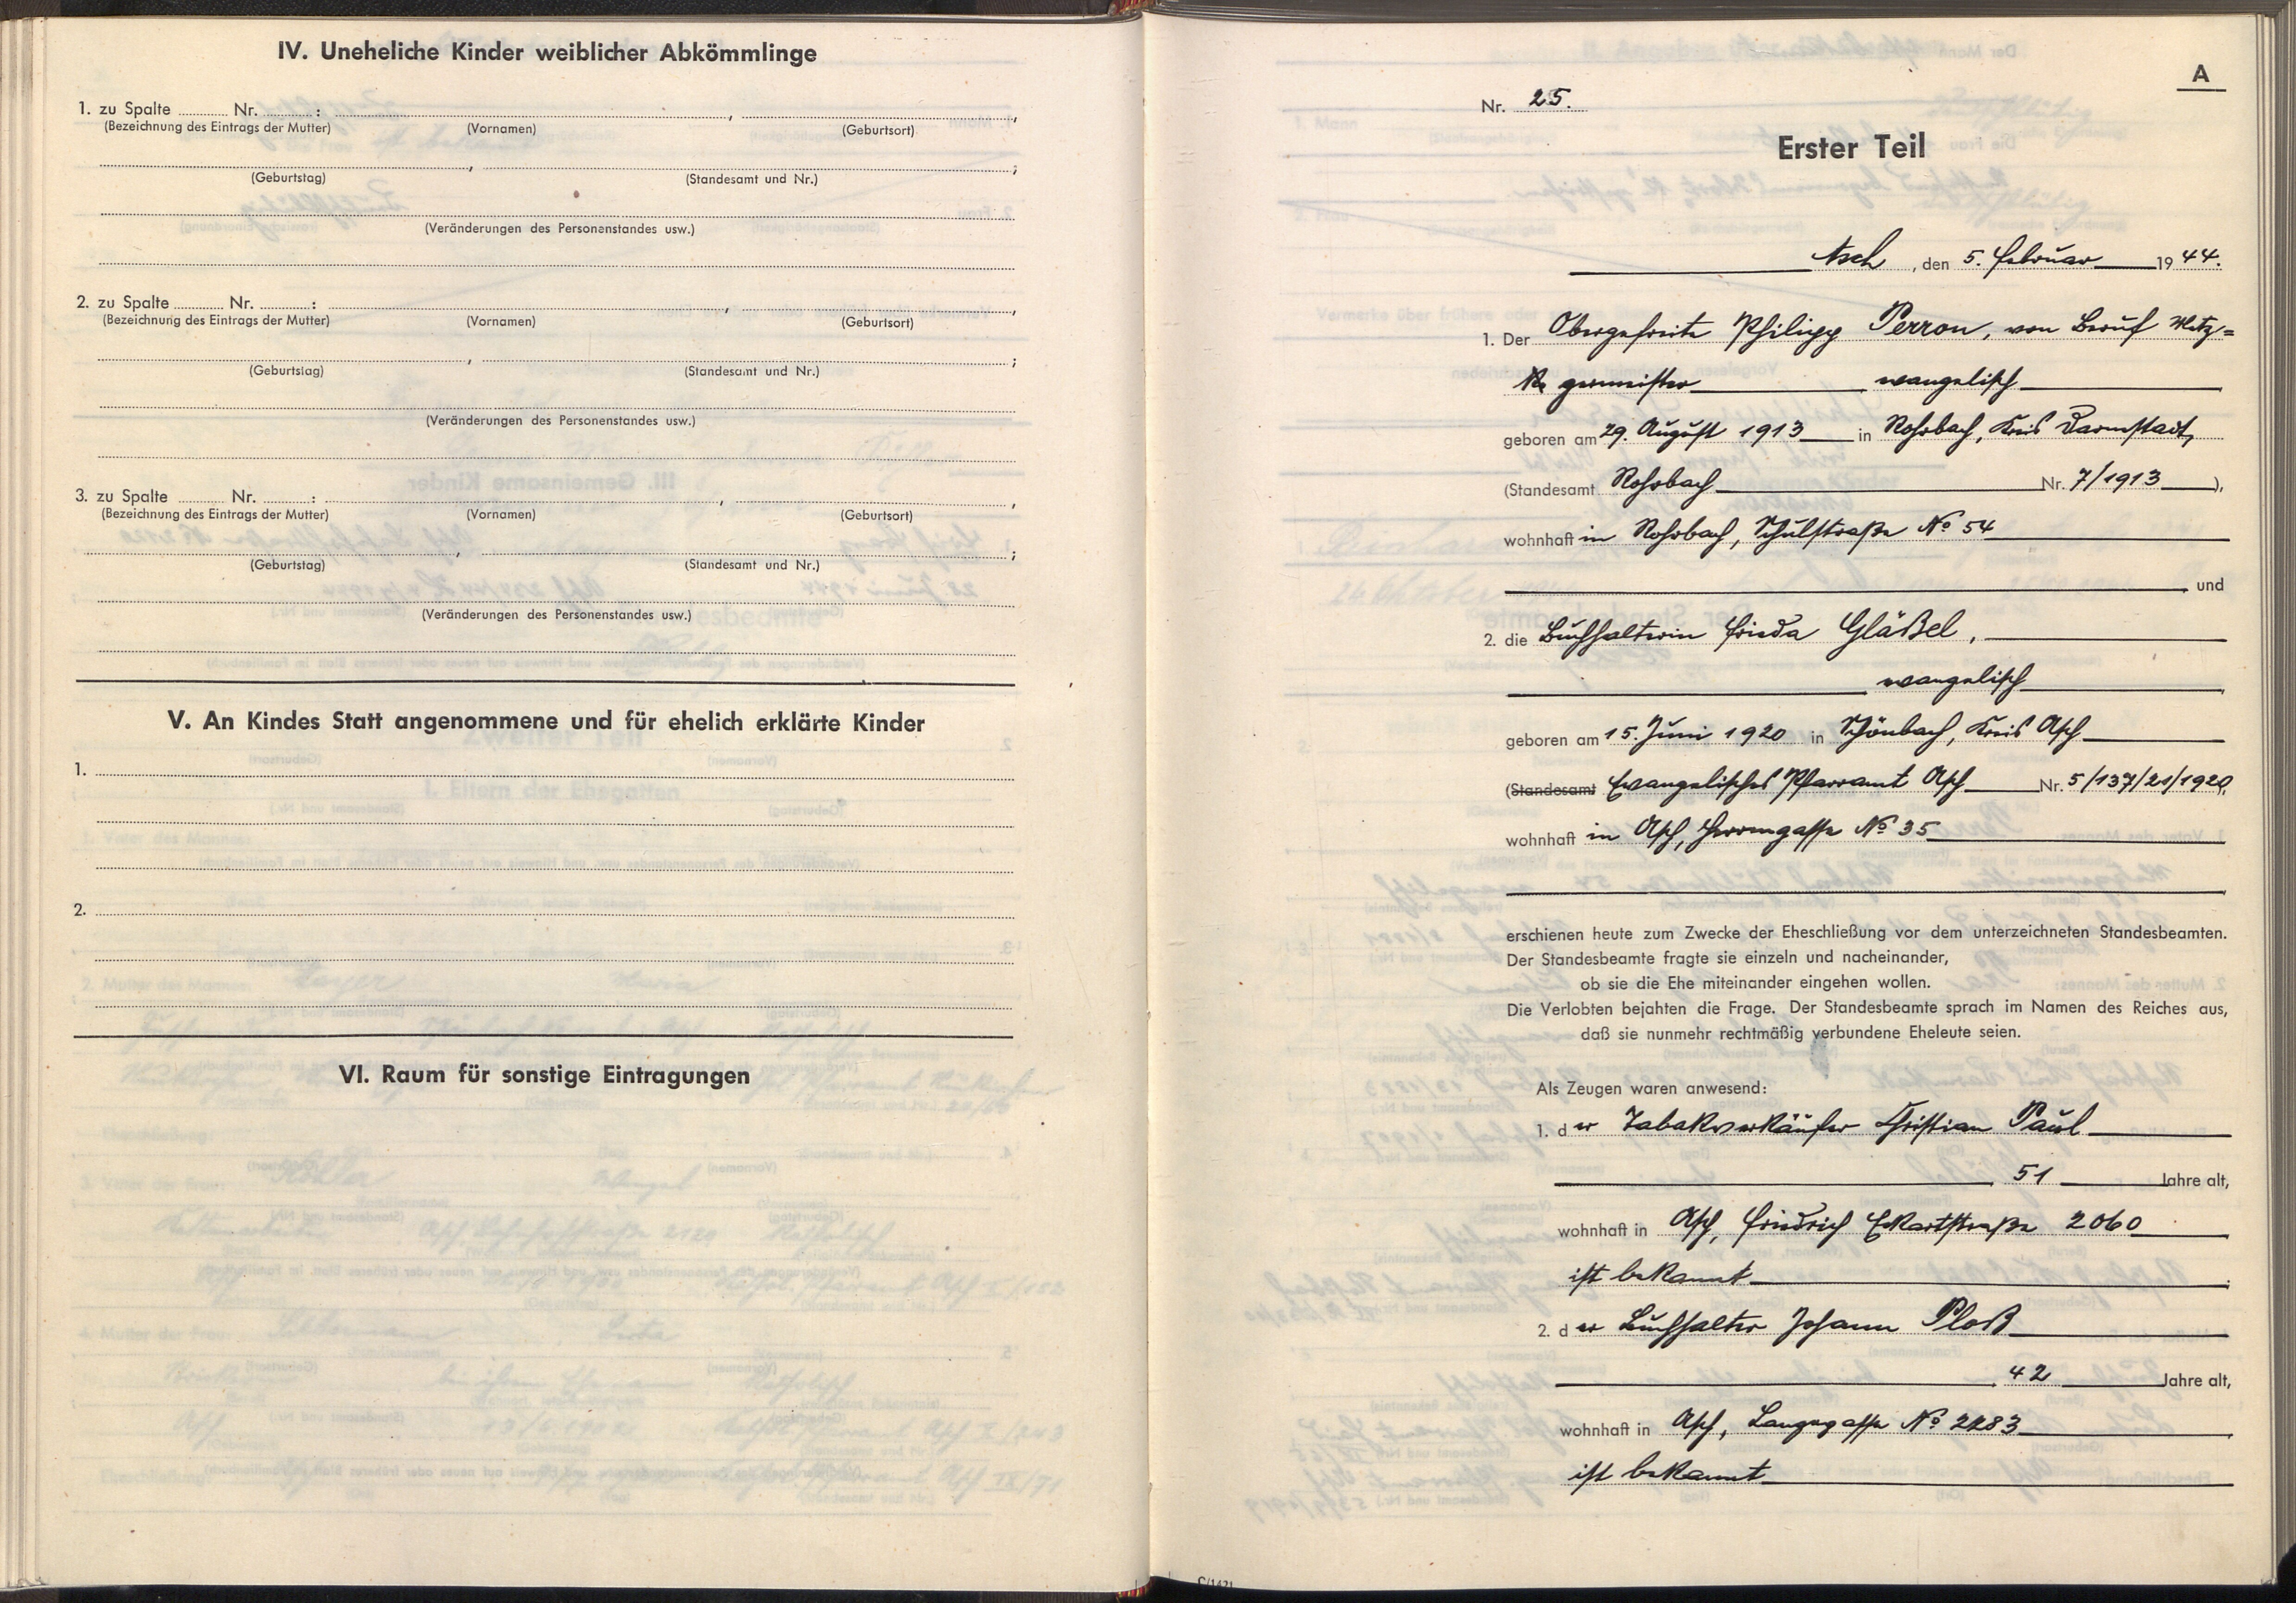 IV. Uneheliche Kinder weiblicher Abkömmlinge
1. zu Spalte ......... Nr. .........: ,
(Bezeichnung des Eintrags der Mutter) (Vornamen) (Geburtsort)
, ;
(Geburtstag) (Standesamt und Nr.)
(Veränderungen des Personenstandes usw.)
2. zu Spalte ......... Nr. .........: ,
(Bezeichnung des Eintrags der Mutter) (Vornamen) (Geburtsort)
, ;
(Geburtstag) (Standesamt und Nr.)
(Veränderungen des Personenstandes usw.)
3. zu Spalte ......... Nr. .........: ,
(Bezeichnung des Eintrags der Mutter) (Vornamen) (Geburtsort)
, ;
(Geburtstag) (Standesamt und Nr.)
(Veränderungen des Personenstandes usw.)
V. An Kindes Statt angenommene und für ehelich erklärte Kinder
1.
2.
VI. Raum für sonstige Eintragungen
A
Nr. 25.
Erster Teil
Asch, den 5. Februar 1944.
1. Der Obergefreite Philipp Perron, von Beruf Metz=
germeister evangelisch
geboren am 29. August 1913 in Rohrbach, Kreis Darmstadt,
(Standesamt Rohrbach Nr. 7/1913),
wohnhaft in Rohrbach, Schulstraße No 54
und
2. die Buchhalterin Frieda Gläßel,
evangelisch
geboren am 15. Juni 1920 in Schönbach, Kreis Asch
(Standesamt Evangelisches Pfarramt Asch Nr. 5/137/21/1920),
wohnhaft in Asch, Herrngasse No 35
erschienen heute zum Zwecke der Eheschließung vor dem unterzeichneten Standesbeamten.
Der Standesbeamte fragte sie einzeln und nacheinander,
ob sie die Ehe miteinander eingehen wollen.
Die Verlobten bejahten die Frage. Der Standesbeamte sprach im Namen des Reiches aus,
daß sie nunmehr rechtmäßig verbundene Eheleute seien.
Als Zeugen waren anwesend:
1. der Tabakverkäufer Christian Paul
51 Jahre alt,
wohnhaft in Asch, Friedrich Eckartstraße 2060
ist bekannt
2. der Buchhalter Johann Ploß
42 Jahre alt,
wohnhaft in Asch, Langegasse No
ist bekannt